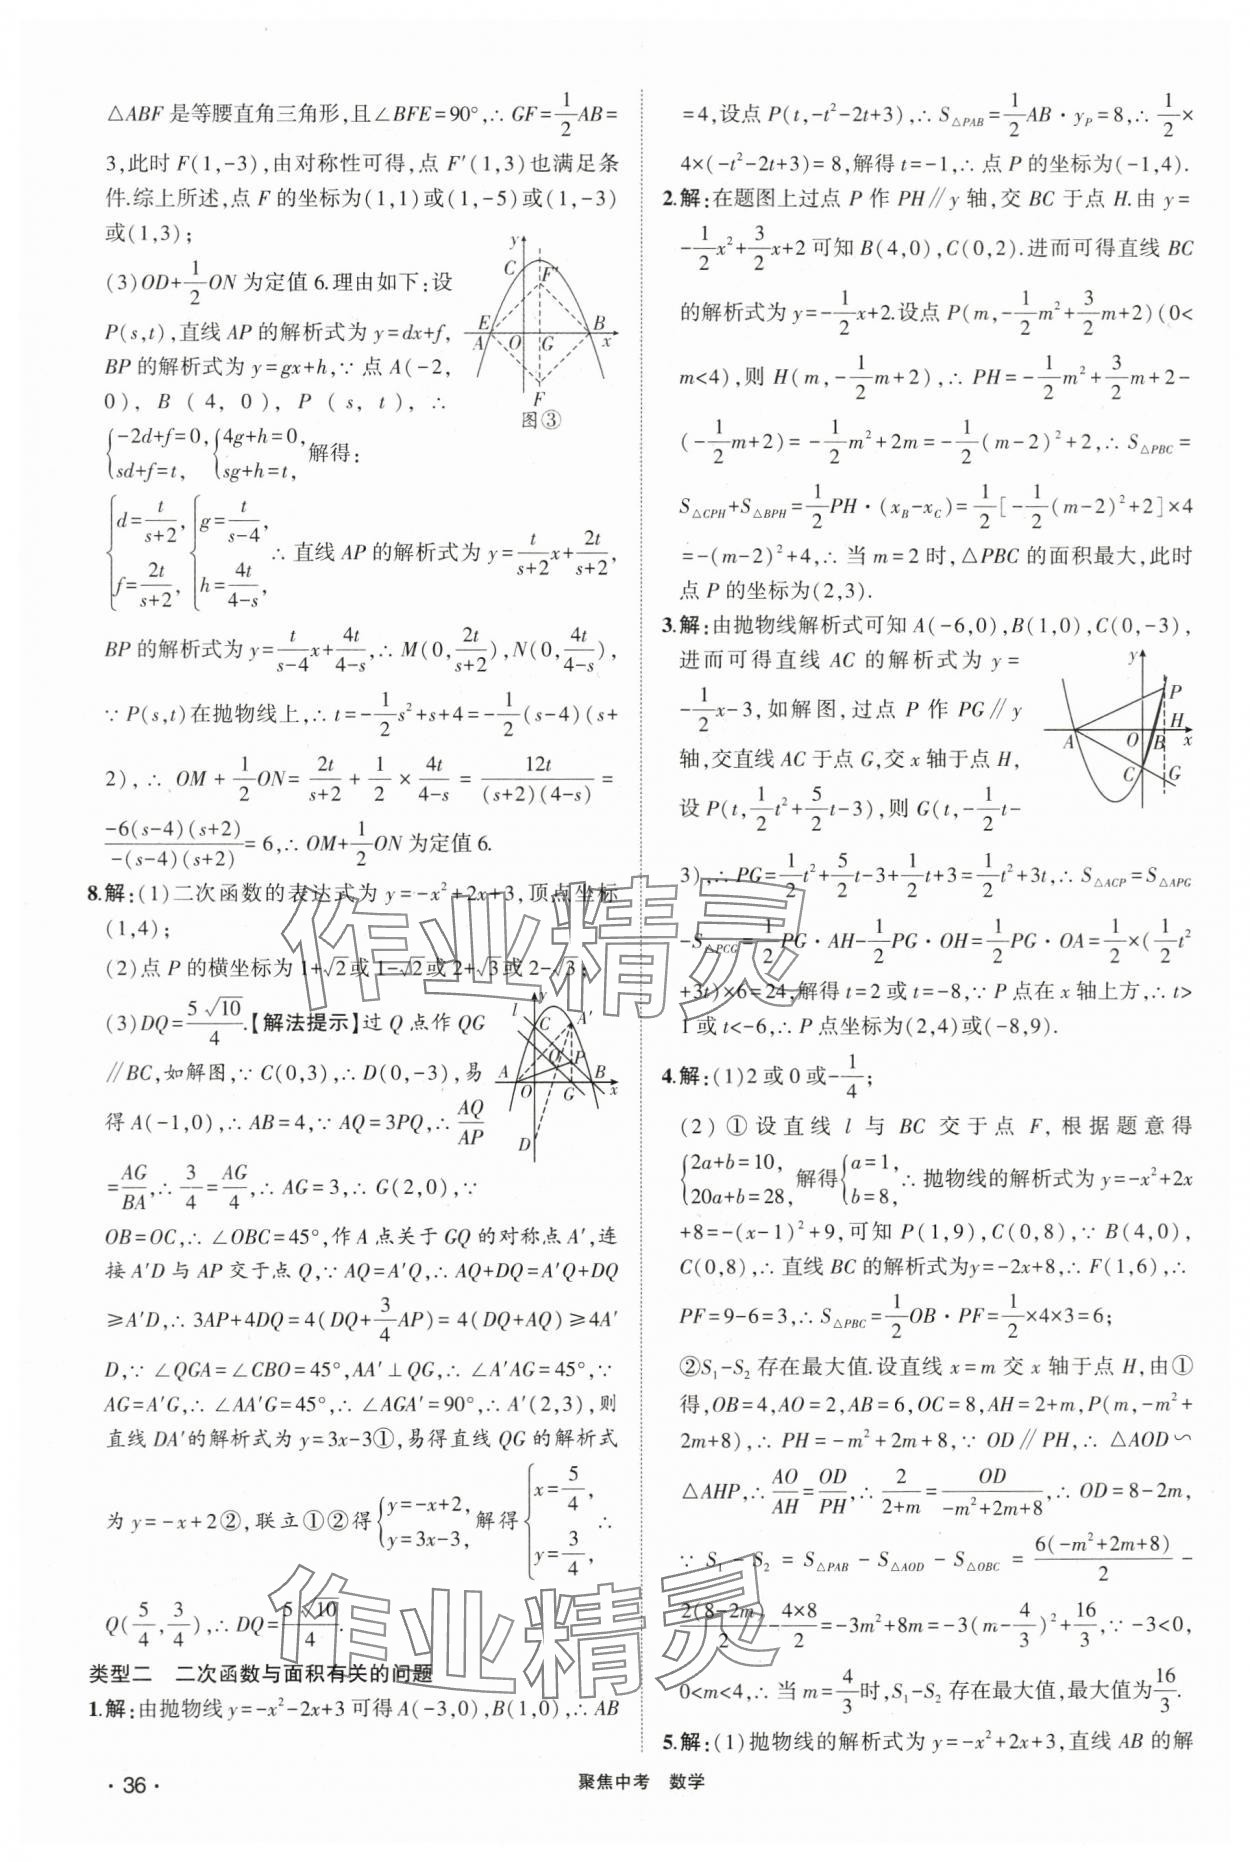 △ABF 是等腰直角三角形,且∠BFE=90°,∴ GF=1/2AB=
3,此时 F(1,-3),由对称性可得,点 F′(1,3)也满足条
件.综上所述,点 F 的坐标为(1,1)或(1,-5)或(1,-3)
或(1,3);
(3)OD+1/2ON 为定值 6.理由如下:设
P(s,t),直线 AP 的解析式为 y=dx+f,
BP 的解析式为 y=gx+h,∵ 点 A(-2,
0), B (4, 0), P (s, t), ∴
{-2d+f=0, sd+f=t, {4g+h=0, sg+h=t, 解得:
{d=t/(s+2), f=2t/(s+2), {g=t/(s-4), h=4t/(4-s), ∴ 直线 AP 的解析式为 y=t/(s+2)x+2t/(s+2),
BP 的解析式为 y=t/(s-4)x+4t/(4-s),∴ M(0,2t/(s+2)),N(0,4t/(4-s)),
∵ P(s,t)在抛物线上,∴ t=-1/2s²+s+4=-1/2(s-4)(s+
2),∴ OM+1/2ON=2t/(s+2)+1/2×4t/(4-s)=12t/((s+2)(4-s))=
-6(s-4)(s+2)/(-(s-4)(s+2))=6,∴ OM+1/2ON 为定值 6.
y
C
F′
E
A
O
G
B
x
F
图③
8.解:(1)二次函数的表达式为 y=-x²+2x+3,顶点坐标
(1,4);
(2)点 P 的横坐标为 1+√2或 1-√2或 2+√3或 2-√3;
(3)DQ=5√10/4.【解法提示】过 Q 点作 QG
∥BC,如解图,∵ C(0,3),∴ D(0,-3),易
得 A(-1,0),∴ AB=4,∵ AQ=3PQ,∴ AQ/AP
=AG/BA,∴ 3/4=AG/4,∴ AG=3,∴ G(2,0),∵
OB=OC,∴ ∠OBC=45°,作 A 点关于 GQ 的对称点 A′,连
接 A′D 与 AP 交于点 Q,∵ AQ=A′Q,∴ AQ+DQ=A′Q+DQ
≥A′D,∴ 3AP+4DQ=4(DQ+3/4AP)=4(DQ+AQ)≥4A′
D,∵ ∠QGA=∠CBO=45°,AA′⊥QG,∴ ∠A′AG=45°,∵
AG=A′G,∴ ∠AA′G=45°,∴ ∠AGA′=90°,∴ A′(2,3),则
直线 DA′的解析式为 y=3x-3①,易得直线 QG 的解析式
为 y=-x+2②,联立①②得{y=-x+2, y=3x-3, 解得{x=5/4, y=3/4, ∴
Q(5/4,3/4),∴ DQ=5√10/4.
l
y
C
A′
Q
P
A
O
G
B
x
D
类型二 二次函数与面积有关的问题
1.解:由抛物线 y=-x²-2x+3 可得 A(-3,0),B(1,0),∴ AB
=4,设点 P(t,-t²-2t+3),∴ S△PAB=1/2AB·yP=8,∴ 1/2×
4×(-t²-2t+3)=8,解得 t=-1,∴ 点 P 的坐标为(-1,4).
2.解:在题图上过点 P 作 PH∥y 轴,交 BC 于点 H.由 y=
-1/2x²+3/2x+2 可知 B(4,0),C(0,2).进而可得直线 BC
的解析式为 y=-1/2x+2.设点 P(m,-1/2m²+3/2m+2)(0<
m<4),则 H(m,-1/2m+2),∴ PH=-1/2m²+3/2m+2-
(-1/2m+2)=-1/2m²+2m=-1/2(m-2)²+2,∴ S△PBC=
S△CPH+S△BPH=1/2PH·(xB-xC)=1/2[-1/2(m-2)²+2]×4
=-(m-2)²+4,∴ 当 m=2 时,△PBC 的面积最大,此时
点 P 的坐标为(2,3).
3.解:由抛物线解析式可知 A(-6,0),B(1,0),C(0,-3),
进而可得直线 AC 的解析式为 y=
-1/2x-3,如解图,过点 P 作 PG∥y
轴,交直线 AC 于点 G,交 x 轴于点 H,
设 P(t,1/2t²+5/2t-3),则 G(t,-1/2t-
3),∴ PG=1/2t²+5/2t-3+1/2t+3=1/2t²+3t,∴ S△ACP=S△APG
-S△PCG=1/2PG·AH-1/2PG·OH=1/2PG·OA=1/2×(1/2t²
+3t)×6=24,解得 t=2 或 t=-8,∵ P 点在 x 轴上方,∴ t>
1 或 t<-6,∴ P 点坐标为(2,4)或(-8,9).
y
P
H
A
O
B
x
C
G
4.解:(1)2 或 0 或-1/4;
(2)①设直线 l 与 BC 交于点 F,根据题意得
{2a+b=10, 20a+b=28, 解得{a=1, b=8, ∴ 抛物线的解析式为 y=-x²+2x
+8=-(x-1)²+9,可知 P(1,9),C(0,8),∵ B(4,0),
C(0,8),∴ 直线 BC 的解析式为y=-2x+8,∴ F(1,6),∴
PF=9-6=3,∴ S△PBC=1/2OB·PF=1/2×4×3=6;
②S₁-S₂ 存在最大值.设直线 x=m 交 x 轴于点 H,由①
得,OB=4,AO=2,AB=6,OC=8,AH=2+m,P(m,-m²+
2m+8),∴ PH=-m²+2m+8,∵ OD∥PH,∴ △AOD∽
△AHP,∴ AO/AH=OD/PH,∴ 2/(2+m)=OD/(-m²+2m+8),∴ OD=8-2m,
∵ S₁-S₂=S△PAB-S△AOD-S△OBC=6(-m²+2m+8)/2-
2(8-2m)/2-4×8/2=-3m²+8m=-3(m-4/3)²+16/3,∵ -3<0,
0<m<4,∴ 当 m=4/3时,S₁-S₂ 存在最大值,最大值为16/3.
5.解:(1)抛物线的解析式为 y=-x²+2x+3,直线 AB 的解
作业精灵
作业精灵
·36·
聚焦中考 数学